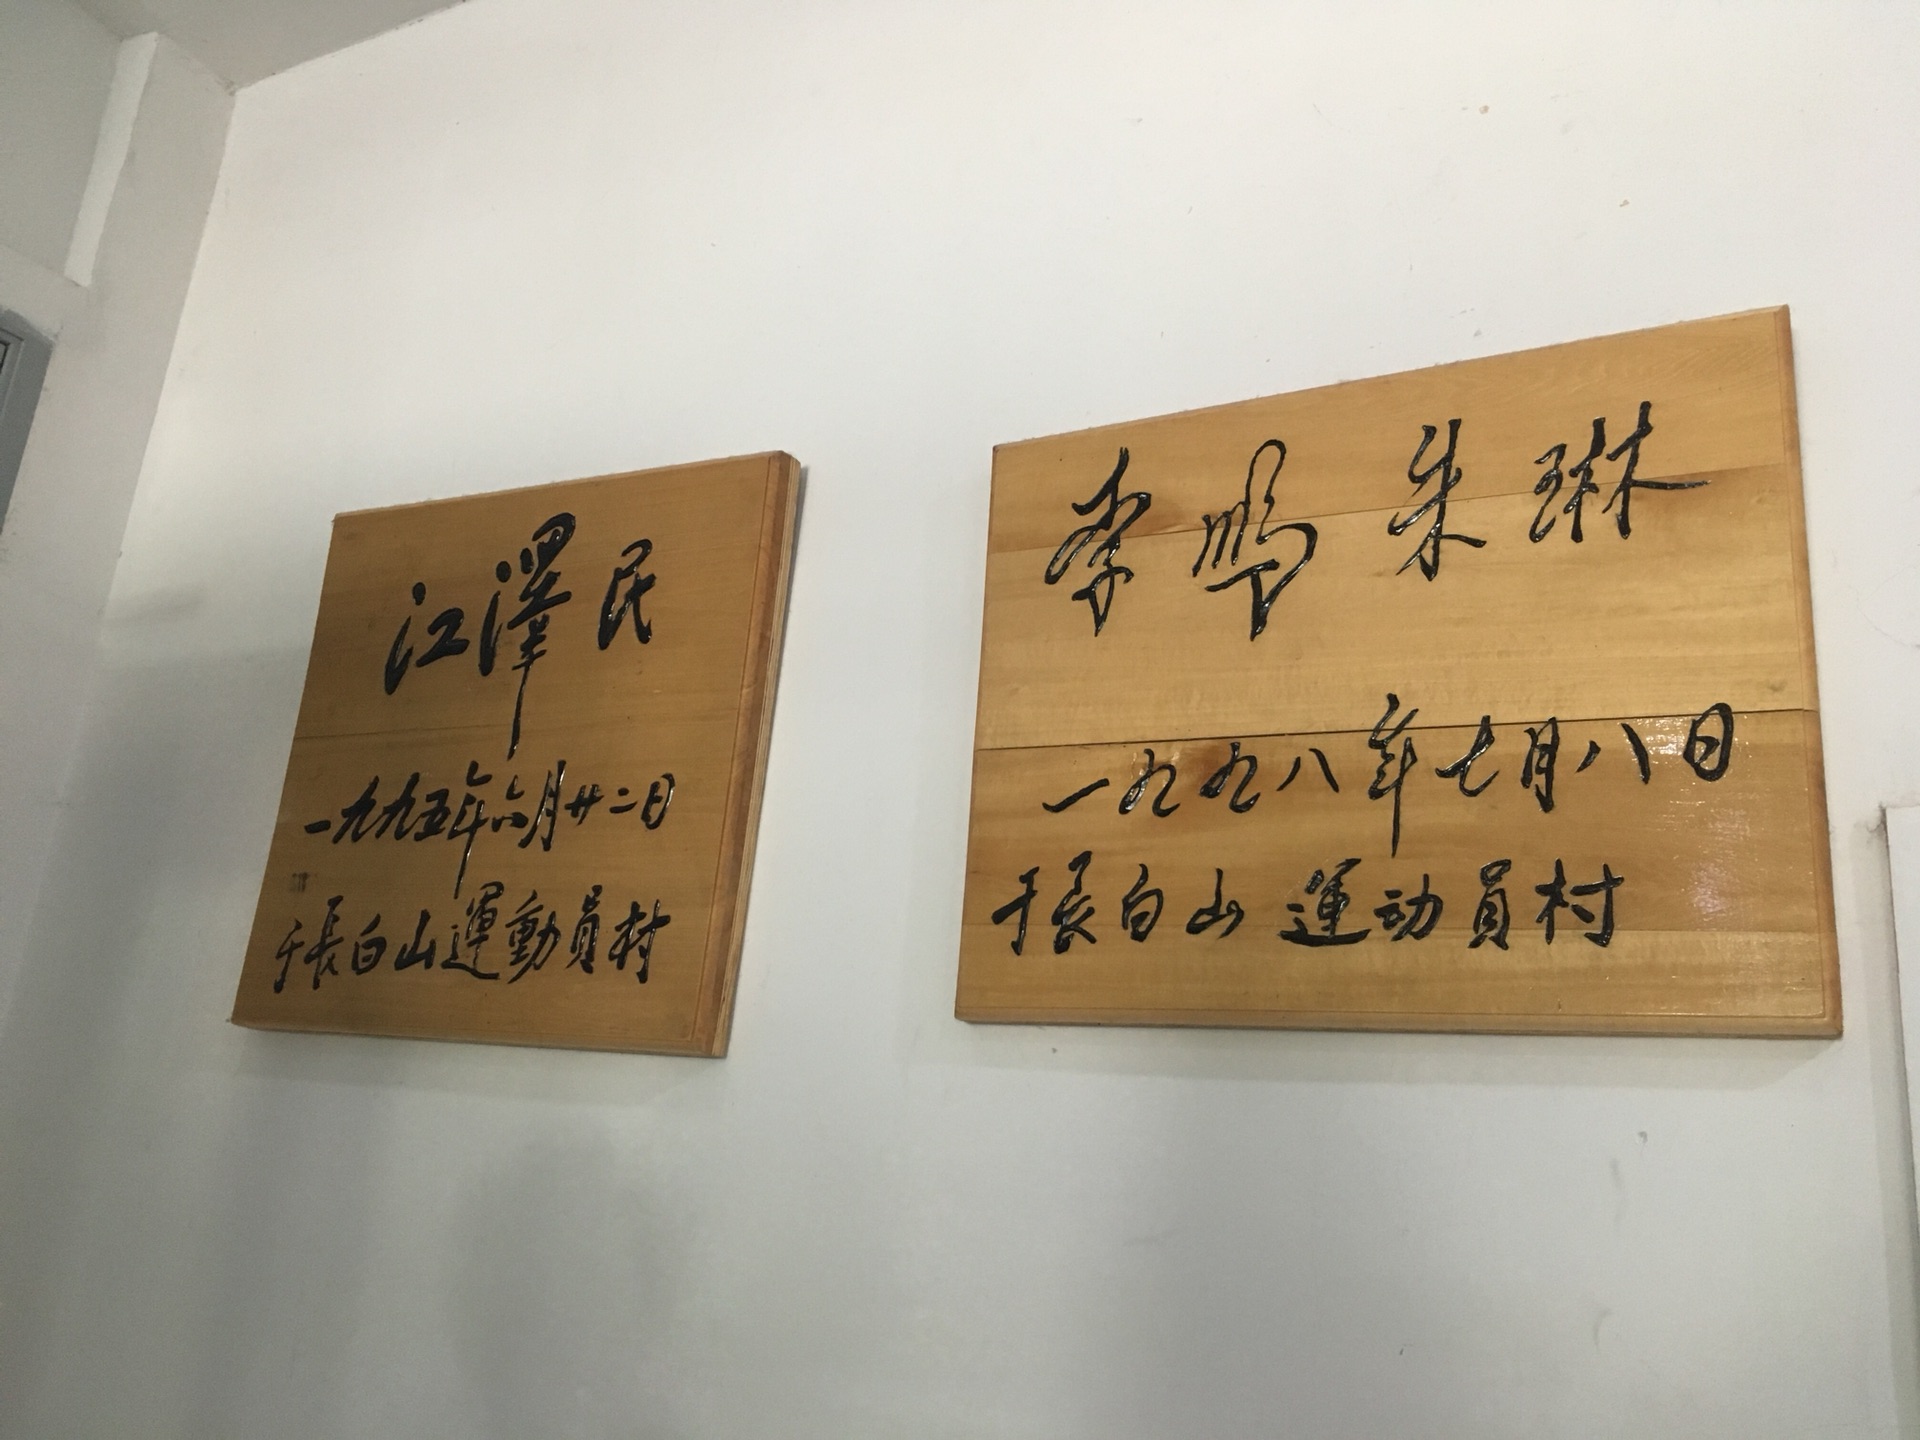 江澤民
一九九五年六月廿二日
于長白山運動員村
李鹏 朱琳
一九九八年七月八日
于長白山運动員村